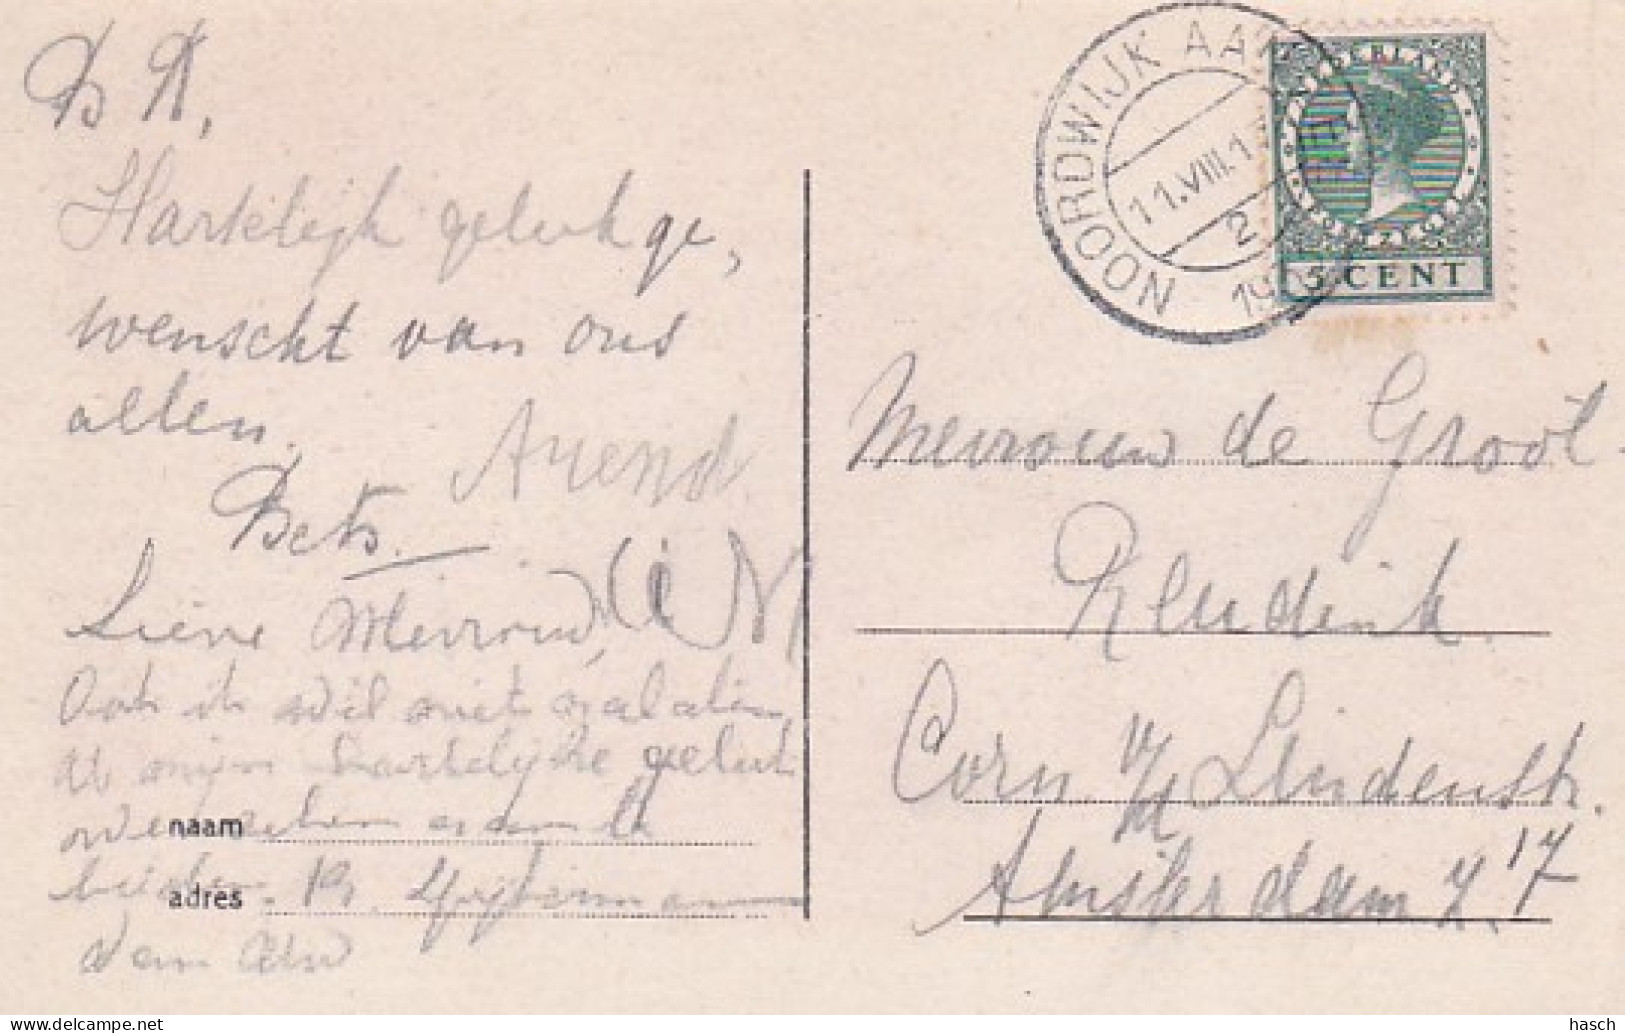 Hartelijk geluk ge,
wenscht van ons
allen.
Arend
Bets.
Lieve Mevrouw,
Ook ik wil niet nalaten
mijn hartelijke geluk
wenschen aan te
bieden.
naam
adres
NOORDWIJK AAN
11.VIII.1
2
19
NEDERLAND
5 CENT
Mevrouw de Groot-
Corn v/d Lindenstr.
17
Amsterdam Z.
hasch